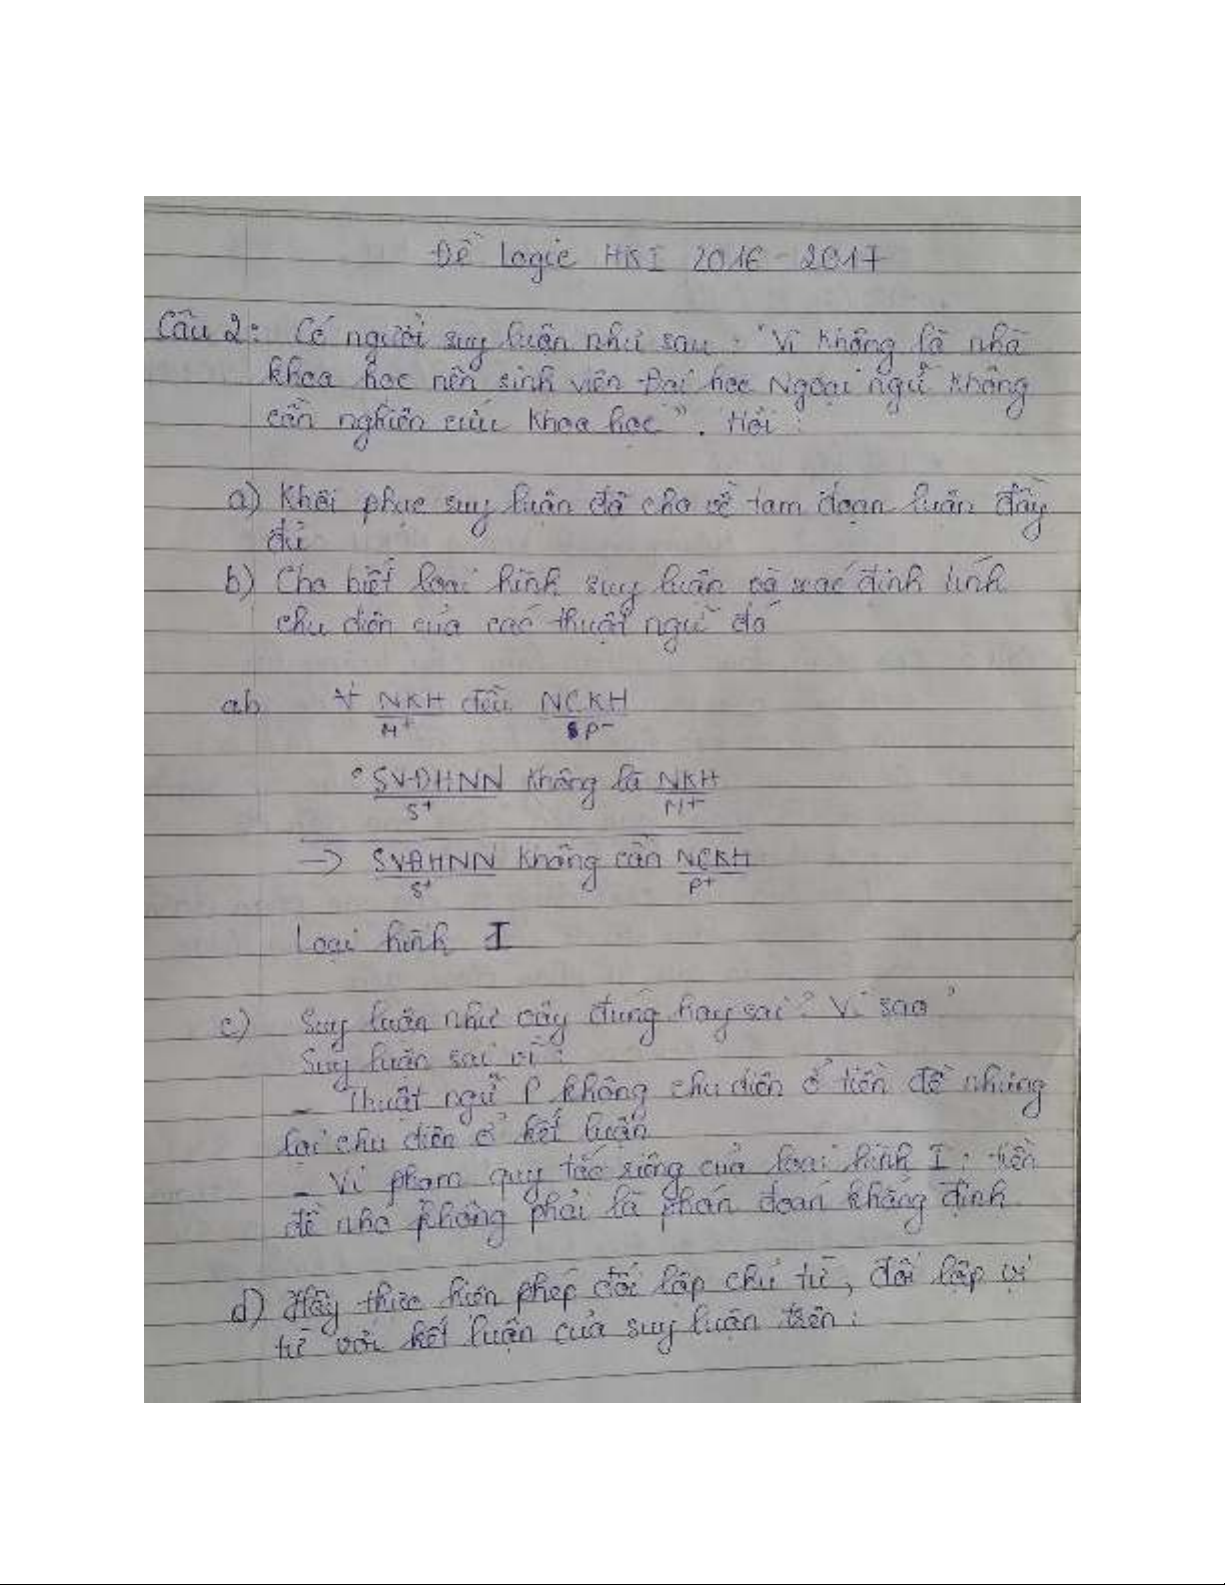 Đề logic HKI 2016 - 2017
Câu 2: Có người suy luận như sau: "Vì không là nhà
khoa học nên sinh viên Đại học Ngoại ngữ không
cần nghiên cứu khoa học". Hỏi:
a) Khôi phục suy luận đã cho về tam đoạn luận đầy
đủ
b) Cho biết loại hình suy luận và xác định tính
chu diên của các thuật ngữ đó
ab ∀ NKH đều NCKH
M+ P-
SVĐHNN không là NKH
S+ M+
→ SVĐHNN không cần NCKH
S+ P+
Loại hình I
c) Suy luận như vậy đúng hay sai? Vì sao?
Suy luận sai vì:
- Thuật ngữ P không chu diên ở tiền đề nhưng
lại chu diên ở kết luận
- Vi phạm quy tắc riêng của loại hình I: tiền
đề nhỏ không phải là phán đoán khẳng định
d) Hãy thực hiện phép đối lập chủ từ, đối lập vị
từ với kết luận của suy luận trên: